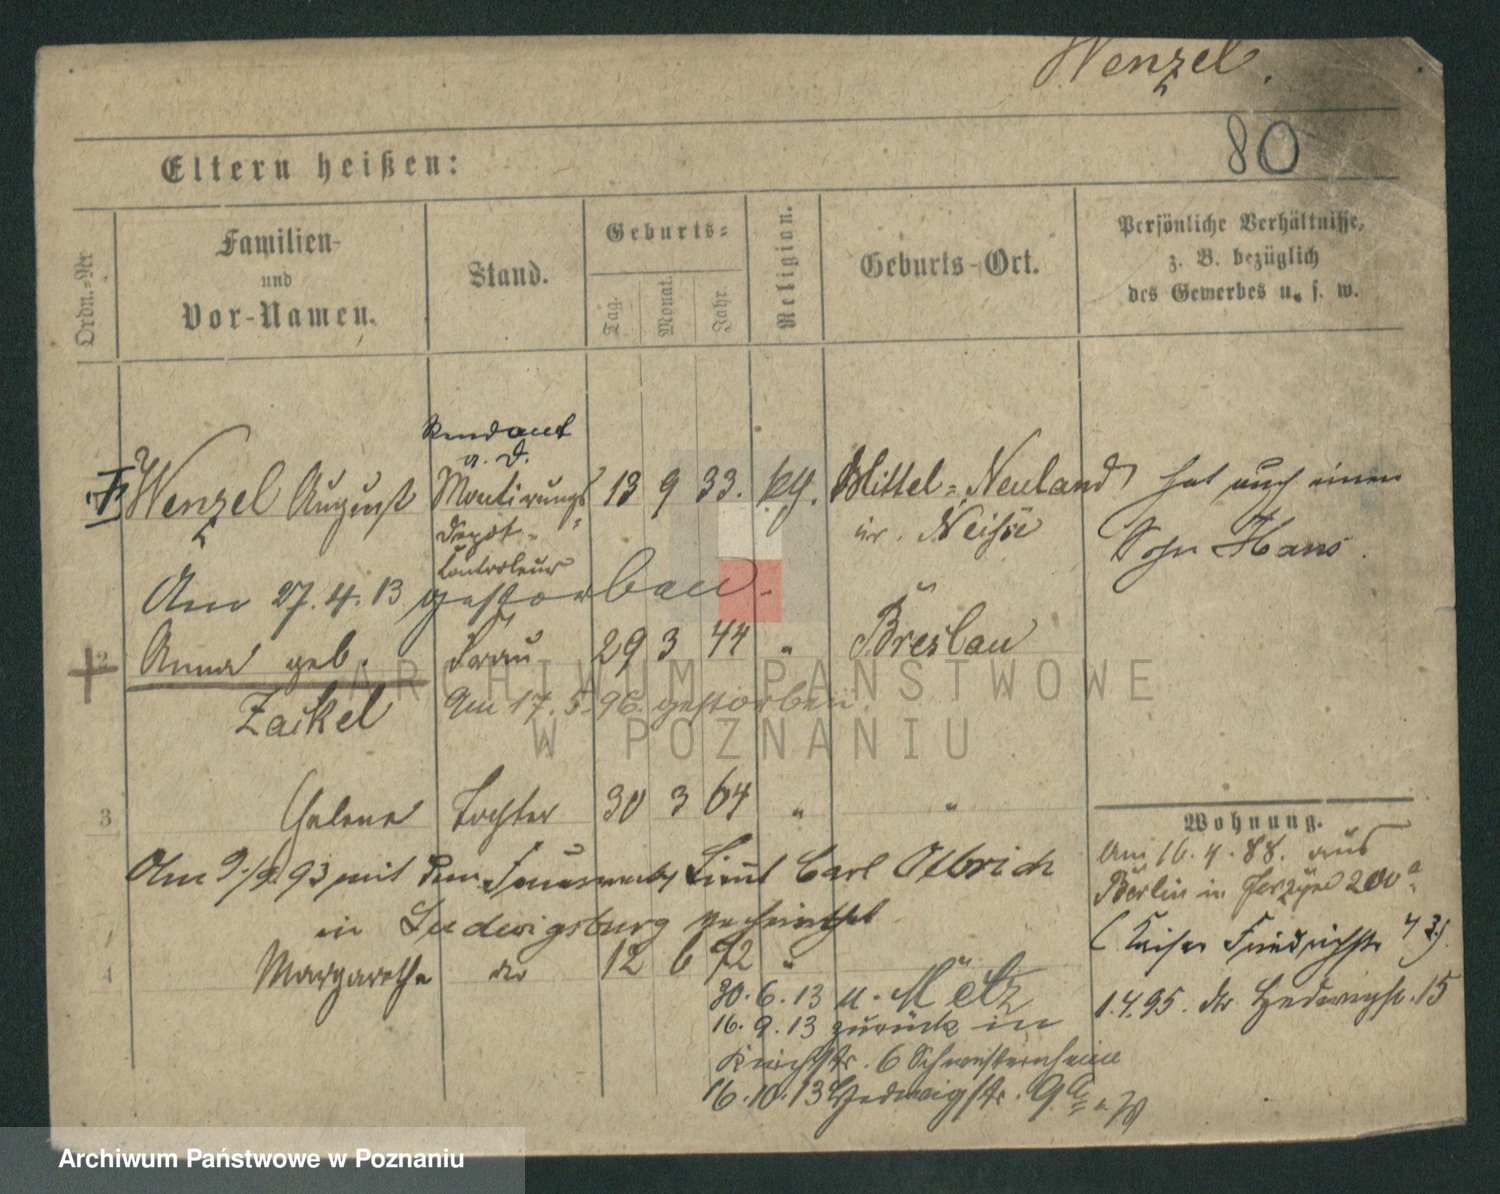 Wenzel.
80
Eltern heißen:
Ordn.-Nr
Familien-
und
Vor-Namen.
Stand.
Geburts-
Tag.
Monat.
Jahr.
Religion.
Geburts-Ort.
Persönliche Verhältnisse,
z. B. bezüglich
des Gewerbes u. s. w.
Rendant
a. D.
Wenzel August Montirungs 13 9 33. Mittel-Neuland hat auch einen
Depot- Neisse Sohn Hans.
Controleur
Am 27.4.13 gestorben.
2 Anna geb. Frau 29 3 44 " Breslau
Zaikel Am 17.5.96. gestorben.
ARCHIWUM PAŃSTWOWE
W POZNANIU
3 Helene Tochter 30 3 64 " "
Wohnung.
Am 16.4.88. aus
Berlin in
Am 93 mit dem Lieut Carl Olbrich
in Ludwigsburg verheirathet
(Kaiser Friedrichstr
4 Margarethe 12 6 72 "
1.4.95. Hedwigstr. 15
30.6.13 n. Metz
16.9.13 zurück in
6 Schwesternheim
16.10.13 Hedwigstr. 9
Archiwum Państwowe w Poznaniu